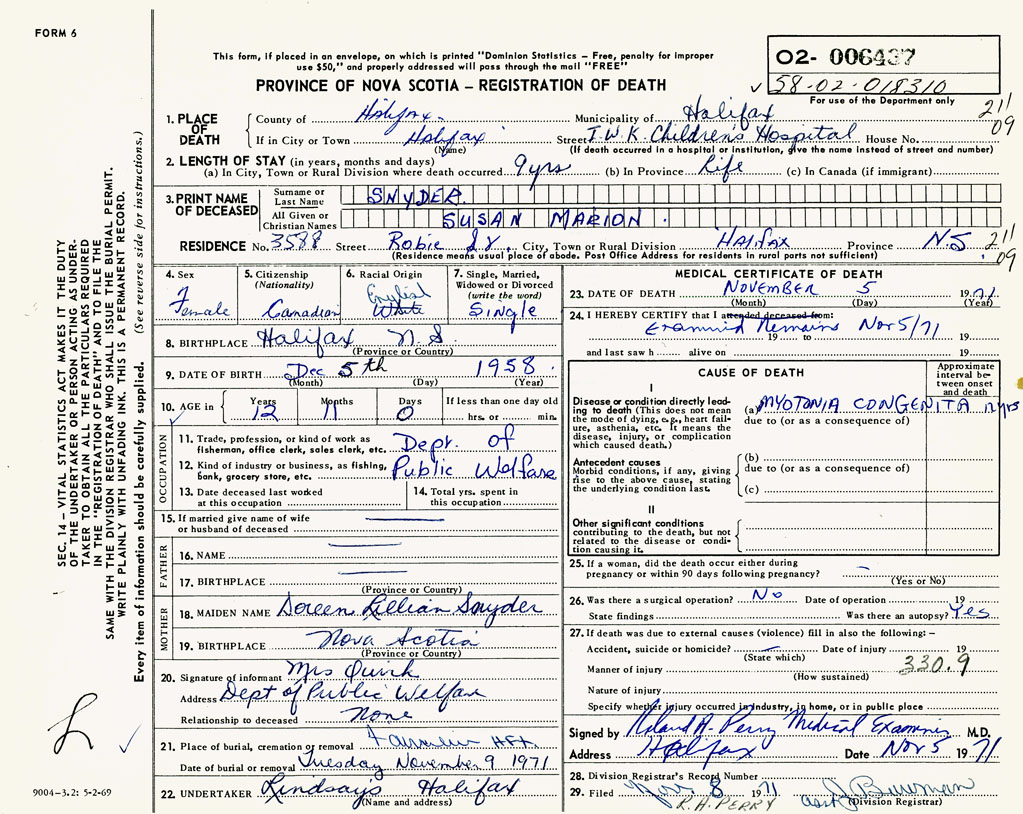 FORM 6
This form, if placed in an envelope, on which is printed "Dominion Statistics – Free, penalty for improper
use $50," and properly addressed will pass through the mail "FREE"
PROVINCE OF NOVA SCOTIA – REGISTRATION OF DEATH
02- 006437
58-02-018310
For use of the Department only
211
09
1. PLACE OF DEATH
County of Halifax Municipality of Halifax
If in City or Town Halifax Street I.W.K. Children's Hospital House No.
(Name) (If death occurred in a hospital or institution, give the name instead of street and number)
2. LENGTH OF STAY (in years, months and days)
(a) In City, Town or Rural Division where death occurred 9 yrs (b) In Province Life (c) In Canada (if immigrant)
3. PRINT NAME OF DECEASED
Surname or Last Name SNYDER
All Given or Christian Names SUSAN MARION.
RESIDENCE No. 3588 Street Robie St. City, Town or Rural Division HALIFAX Province N.S
(Residence means usual place of abode. Post Office Address for residents in rural parts not sufficient)
211
09
4. Sex
Female
5. Citizenship
(Nationality)
Canadian
6. Racial Origin
English
White
7. Single, Married,
Widowed or Divorced
(write the word)
Single
8. BIRTHPLACE Halifax N.S
(Province or Country)
9. DATE OF BIRTH Dec 5th 1958
(Month) (Day) (Year)
10. AGE in
Years Months Days If less than one day old
12 11 0 hrs. or min.
OCCUPATION
11. Trade, profession, or kind of work as
fisherman, office clerk, sales clerk, etc. Dept. of
12. Kind of industry or business, as fishing,
bank, grocery store, etc. Public Welfare
13. Date deceased last worked
at this occupation
14. Total yrs. spent in
this occupation
15. If married give name of wife
or husband of deceased
FATHER
16. NAME
17. BIRTHPLACE
(Province or Country)
MOTHER
18. MAIDEN NAME Doreen Lillian Snyder
19. BIRTHPLACE Nova Scotia
(Province or Country)
20. Signature of informant Mrs Quirk
Address Dept of Public Welfare
Relationship to deceased None
21. Place of burial, cremation or removal
Date of burial or removal Tuesday November 9 1971
22. UNDERTAKER Lindsay's Halifax
(Name and address)
MEDICAL CERTIFICATE OF DEATH
23. DATE OF DEATH NOVEMBER 5 1971
(Month) (Day) (Year)
24. I HEREBY CERTIFY that I attended deceased from:
Examined Remains Nov 5/71
19 to 19
and last saw h alive on 19
CAUSE OF DEATH
Approximate interval between onset and death
I
Disease or condition directly leading to death (This does not mean the mode of dying, e.g., heart failure, asthenia, etc. It means the disease, injury, or complication which caused death.)
(a) MYOTONIA CONGENITA 12 yrs
due to (or as a consequence of)
Antecedent causes
Morbid conditions, if any, giving rise to the above cause, stating the underlying condition last.
(b)
due to (or as a consequence of)
(c)
II
Other significant conditions
contributing to the death, but not related to the disease or condition causing it.
25. If a woman, did the death occur either during
pregnancy or within 90 days following pregnancy?
(Yes or No)
26. Was there a surgical operation? No Date of operation 19
State findings Was there an autopsy? Yes
27. If death was due to external causes (violence) fill in also the following: –
Accident, suicide or homicide? Date of injury 19
(State which)
Manner of injury 330.9
(How sustained)
Nature of injury
Specify whether injury occurred in industry, in home, or in public place
Signed by Roland A. Perry Medical Examiner M.D.
Address Halifax Date Nov 5 1971
28. Division Registrar's Record Number
29. Filed Nov. 8 1971
R.H. PERRY
(Division Registrar)
SEC. 14 – VITAL STATISTICS ACT MAKES IT THE DUTY
OF THE UNDERTAKER OR PERSON ACTING AS UNDERTAKER
TO OBTAIN ALL THE PARTICULARS REQUIRED
IN THE "REGISTRATION OF DEATH" AND TO FILE THE
SAME WITH THE DIVISION REGISTRAR WHO SHALL ISSUE THE BURIAL PERMIT.
WRITE PLAINLY WITH UNFADING INK. THIS IS A PERMANENT RECORD.
Every item of information should be carefully supplied. (See reverse side for instructions.)
9004-3.2: 5-2-69